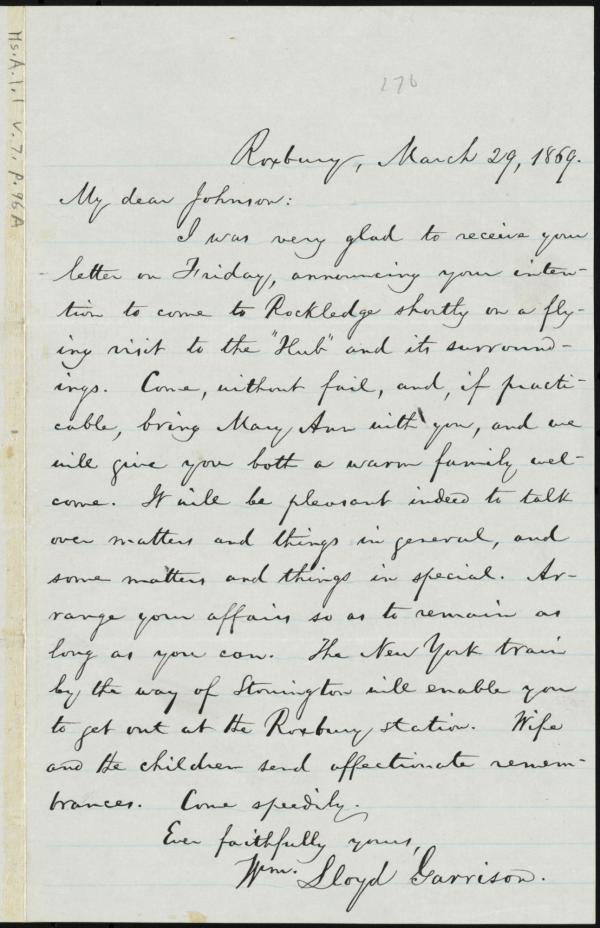 Ms.A.1.1 v.7, p.96A
276
Roxbury, March 29, 1869.
My dear Johnson:
I was very glad to receive your
letter on Friday, announcing your inten-
tion to come to Rockledge shortly on a fly-
ing visit to the "Hub" and its surround-
ings. Come, without fail, and, if practi-
cable, bring Mary Ann with you, and we
will give you both a warm family wel-
come. It will be pleasant indeed to talk
over matters and things in general, and
some matters and things in special. Ar-
range your affairs so as to remain as
long as you can. The New York train
by the way of Stonington will enable you
to get out at the Roxbury station. Wife
and the children send affectionate remem-
brances. Come speedily.
Ever faithfully yours,
Wm. Lloyd Garrison.